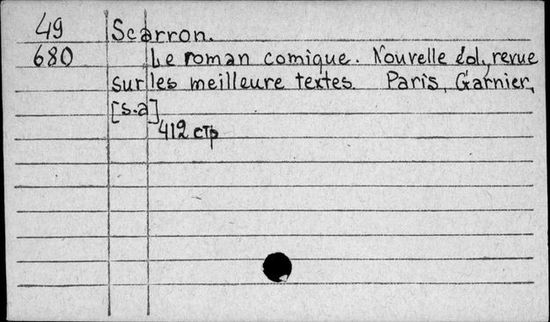 49 Scarron.
680 Le roman comique. Nouvelle éd., revue
sur les meilleure textes. Paris, Garnier,
[s.a]
412 стр